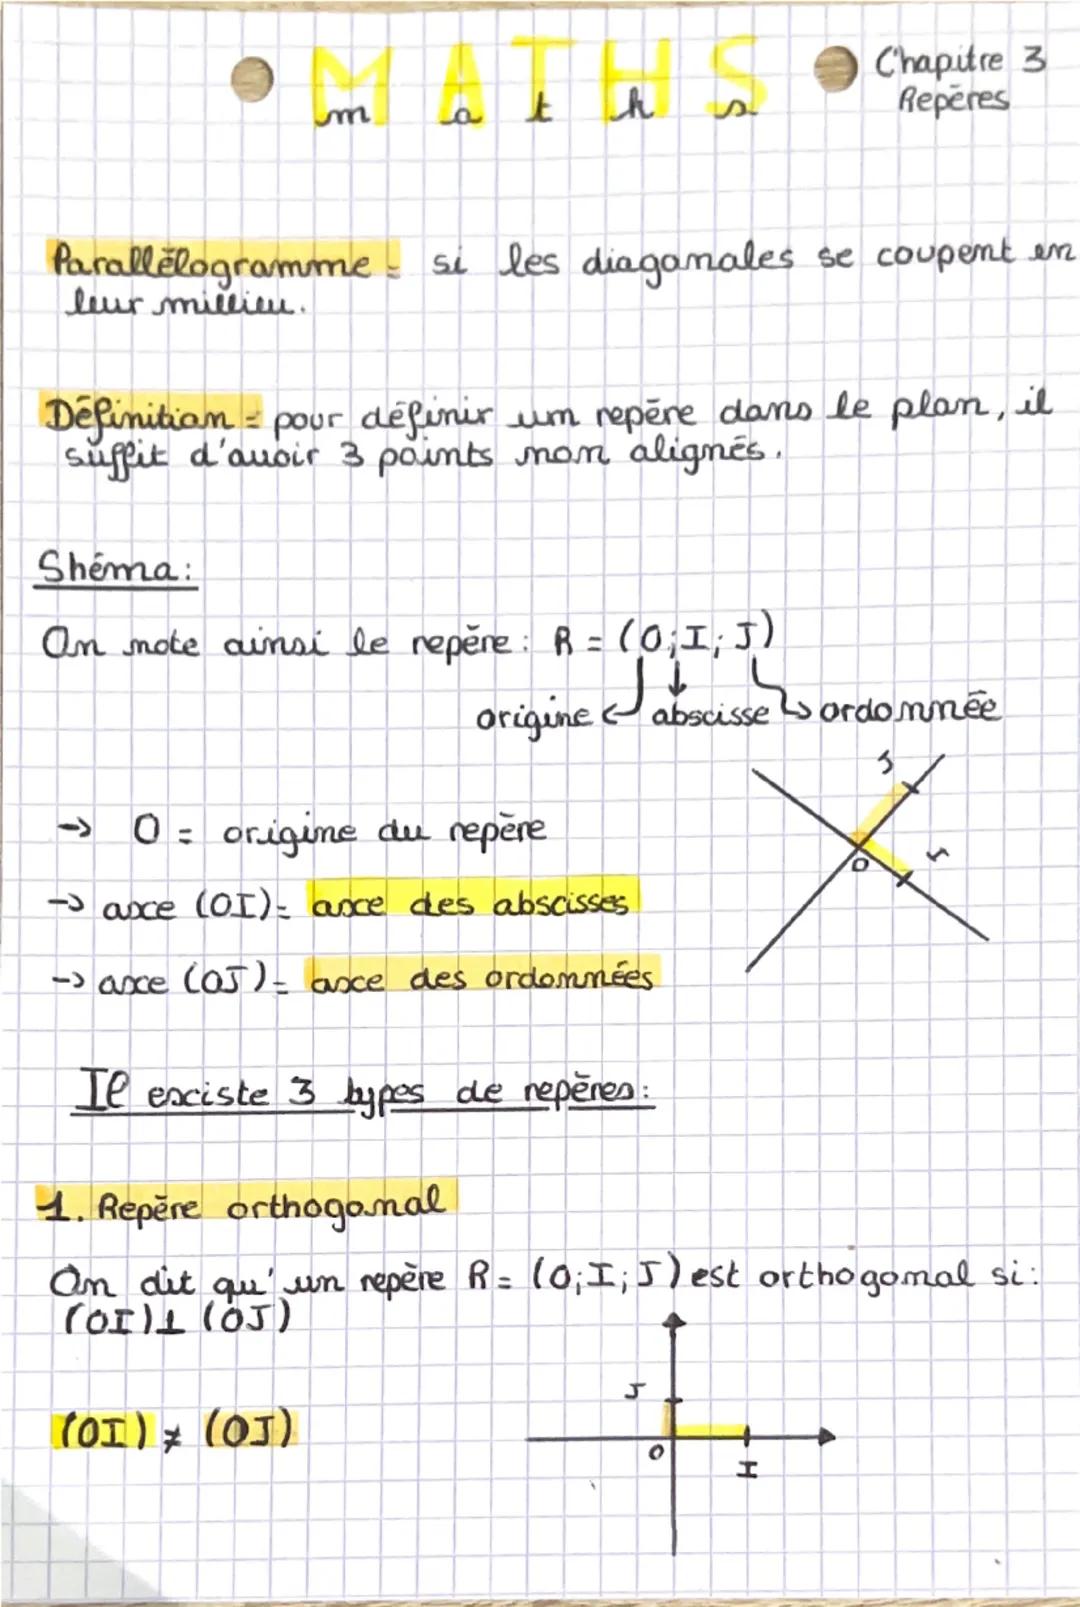 MATHS
maths
Chapitre 3
Repères
Parallélogramme = si les diagonales se coupent en
leur millieu.
Définition = pour définir un repère dans le plan, il
suffit d'avoir 3 points non alignés.
Shéma:
On note ainsi le repère : R = (O;I;J)
origine abscisse ordonnée
J
→ O = origine du repère
O I
→ axe (OI) = axe des abscisses
→ axe (OJ) = axe des ordonnées
Il existe 3 types de repères:
1. Repère orthogonal
On dit qu'un repère R = (O;I;J) est orthogonal si:
(OI)⊥(OJ)
J
(OI) ≠ (OJ)
O
I